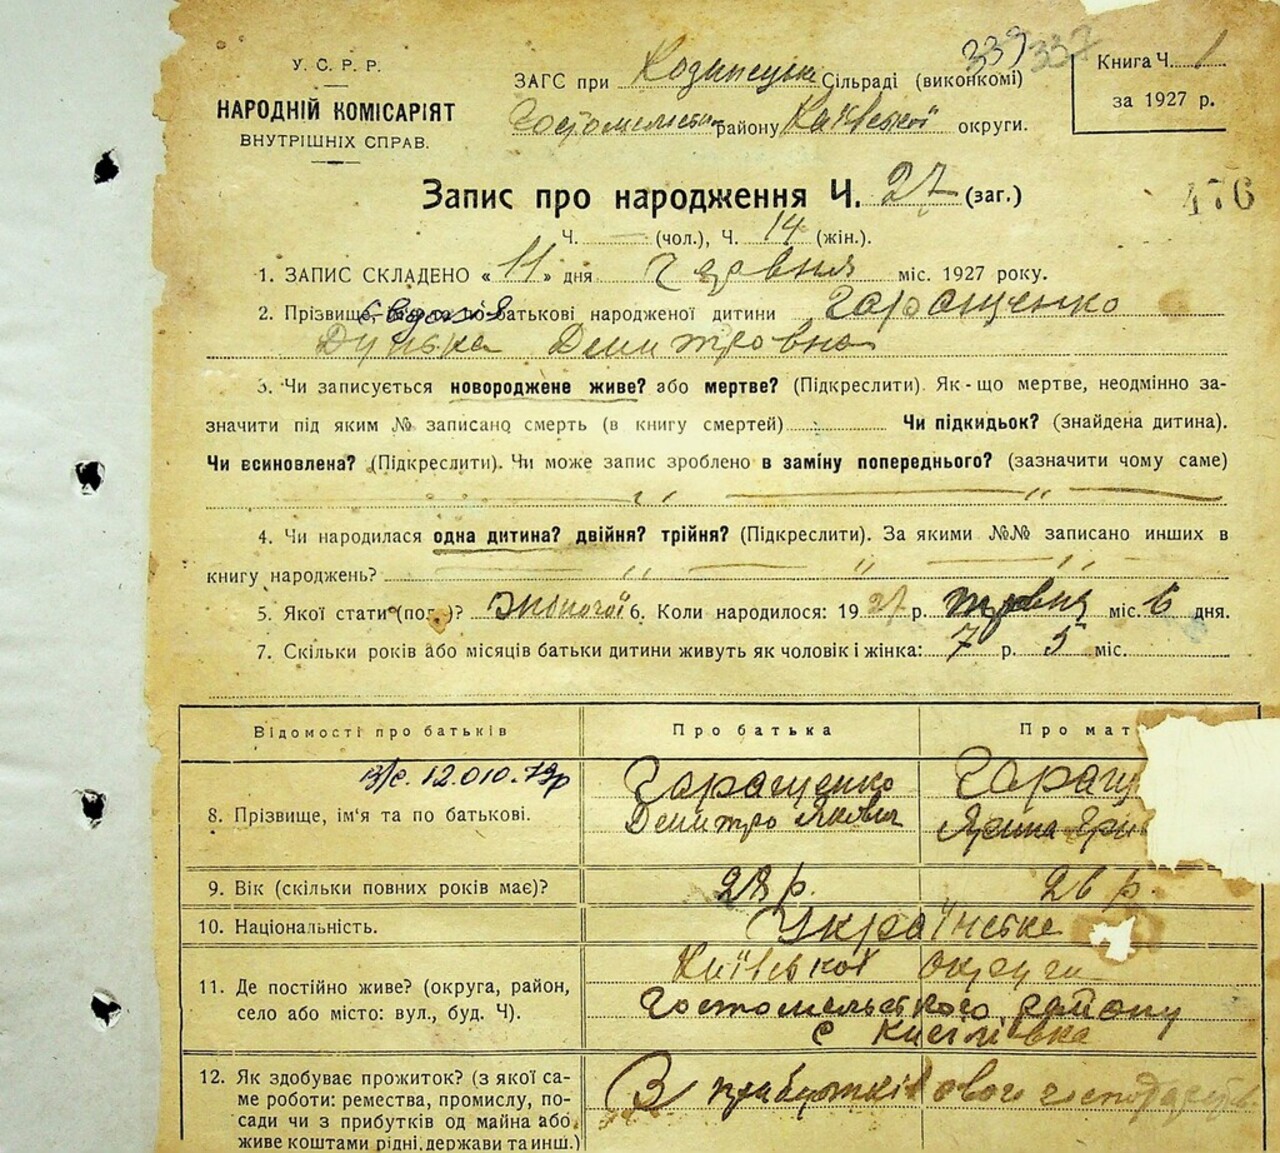 339 337
У. С. Р. Р.
НАРОДНІЙ КОМІСАРІЯТ
ВНУТРІШНІХ СПРАВ.
ЗАГС при Сільраді (виконкомі)
району Київської округи.
Книга Ч. 1
за 1927 р.
476
Запис про народження Ч. 27 (заг.)
Ч. (чол.), Ч. 14 (жін.).
1. ЗАПИС СКЛАДЕНО « 11 » дня червня міс. 1927 року.
2. Прізвище, по-батькові народженої дитини Гаращенко
Євдокія
Дунька Демитровна
3. Чи записується новороджене живе? або мертве? (Підкреслити). Як-що мертве, неодмінно за-
значити під яким № записано смерть (в книгу смертей) Чи підкидьок? (знайдена дитина).
Чи всиновлена? (Підкреслити). Чи може запис зроблено в заміну попереднього? (зазначити чому саме)
4. Чи народилася одна дитина? двійня? трійня? (Підкреслити). За якими №№ записано инших в
книгу народжень?
5. Якої стати (пол )? жіночої 6. Коли народилося: 19 27 р. травня міс. 6 дня.
7. Скільки років або місяців батьки дитини живуть як чоловік і жінка: 7 р. 5 міс.
Відомості про батьків Про батька Про мат
8. Прізвище, ім'я та по батькові. Гаращенко Гаращ
Демитро Якович Ярина Гри
9. Вік (скільки повних років має)? 28 р. 26 р.
10. Національність. Українське
11. Де постійно живе? (округа, район,
село або місто: вул., буд. Ч).
Київської округи
Гостомельского району
с Киселівка
12. Як здобуває прожиток? (з якої са-
ме роботи: ремества, промислу, по-
сади чи з прибутків од майна або
живе коштами рідні, держави та инш.)
З прибутків ового господарств